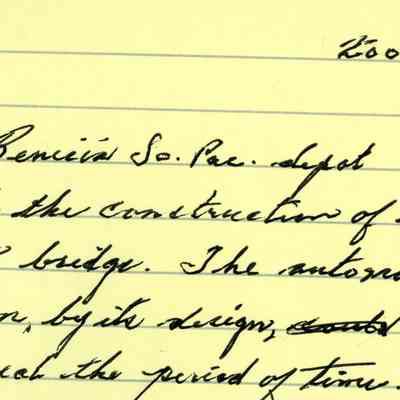 Benicia So. Pac. depot
the construction of
bridge. The
by its design, could
the period of time